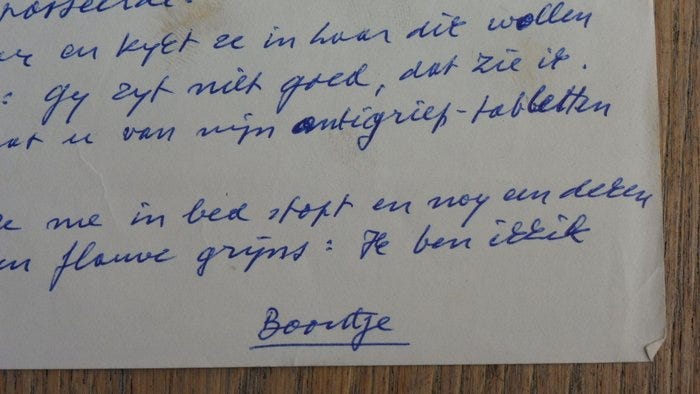 passeerde.
en kijkt ze in haar dit wollen
: gij zijt niet goed, dat zie ik.
at u van mijn antigriep-tabletten
me in bed stopt en nog een deken
flauwe grijns: Ik ben ikkik
Boontje